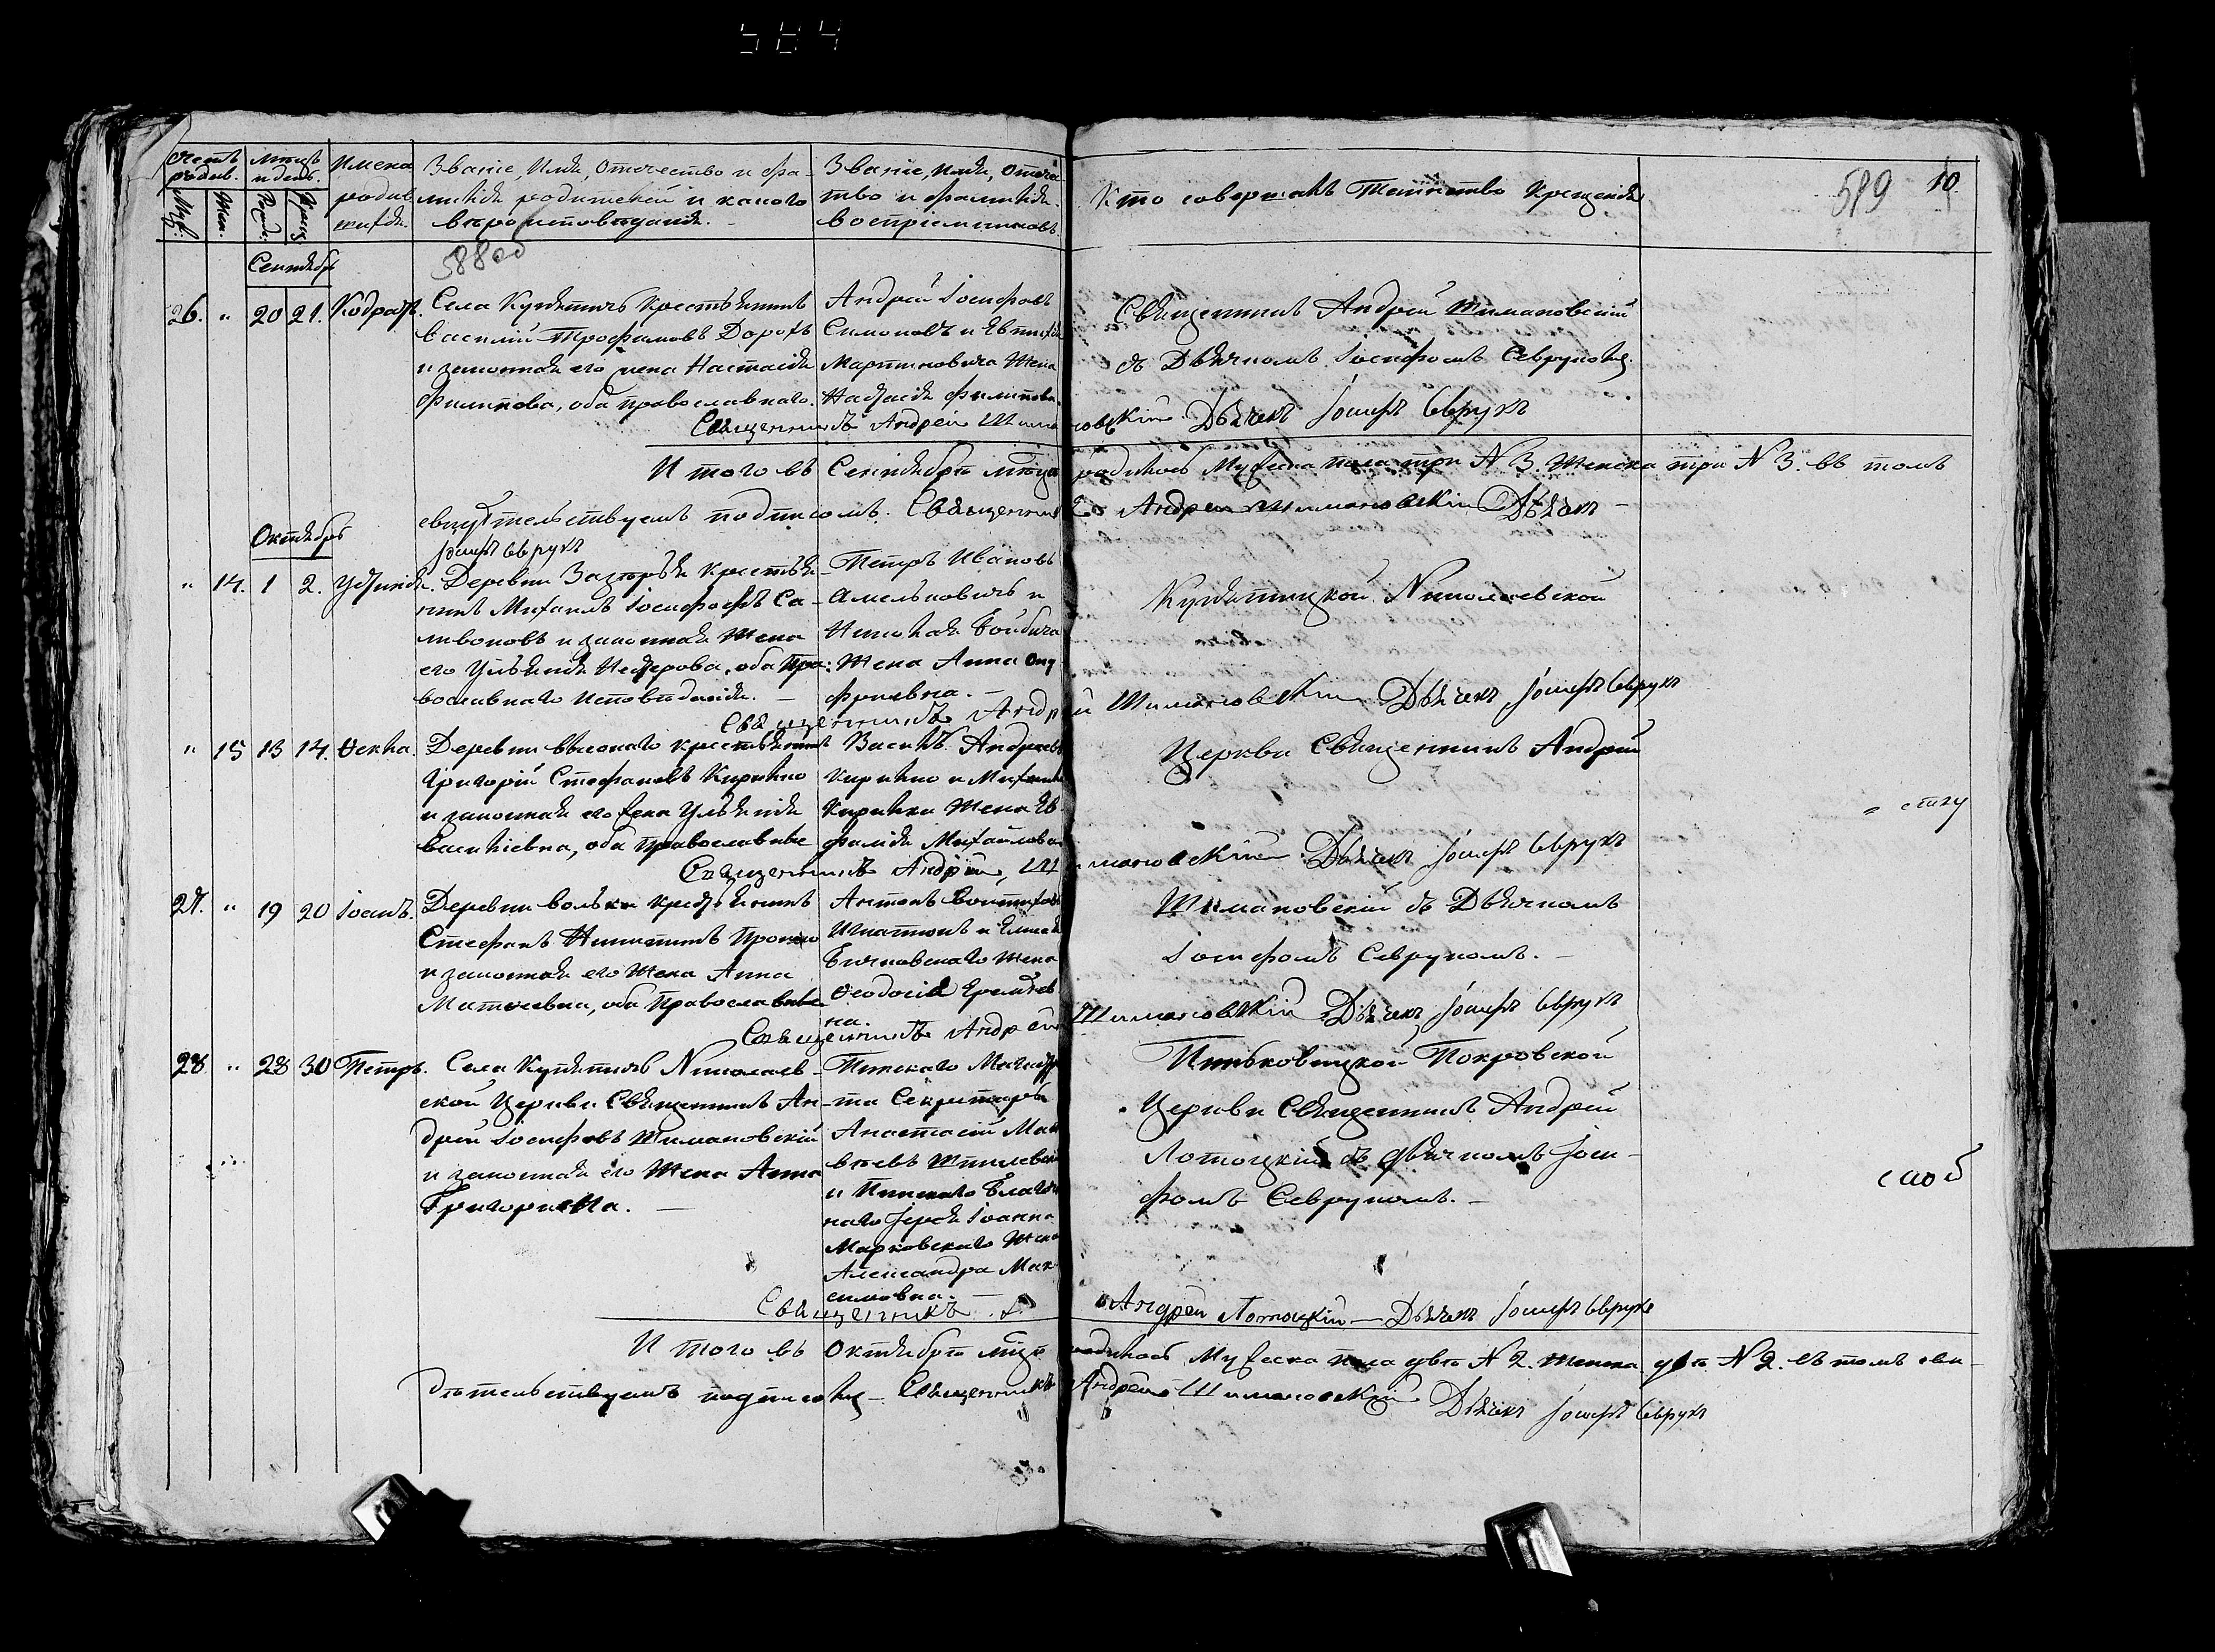 584
Счетъ родив.
Муж.
Жен.
Мѣсяцъ и день.
Рожд.
Крещ.
Имена родив
шихся.
Званіе, Имя, Отечество и фа-
милія родителей и какого
вѣроисповѣданія.
Званіе, Имя, Отече
тво и фамилія
воспріемниковъ.
Кто совершалъ Таинство Крещенія
589
10.
Сентябрь
26. " 20 21. Кодратъ.
Села Купятичъ Крестьянинъ
Василій Трофимовъ Дорохъ
и законная его жена Настасія
Филипова, оба православнаго.
Андрей Іосифовъ
Симоновъ и Евтихія
Мартиновича Жена
Настасія Филипова.
Священникъ Андрей Шимановскій
съ Дьячкомъ Іосифомъ Севрукомъ
Священникъ Андрей Шимановскій Дьячекъ Іосифъ Севрукъ
И того въ Сентябрѣ мѣсяцѣ родилось Мужеска пола три N 3. Женска три N 3. въ томъ
свидѣтельствуемъ подписомъ. Священникъ Андрей Шимановскій Дьячекъ
Іосифъ Севрукъ
Октябрь
" 14. 1 2. Устинія.
Деревни Заозерья крестьянинъ
нинъ Михаилъ Іосифовъ Са-
мвоновъ и законная Жена
его Ульянія Несторова, оба Пра-
вославнаго Исповѣданія. —
Петръ Ивановъ
Амельковичъ и
Николая Бойбича
Жена Анна Ону
фріевна. —
Купятицкой Николаевской
Священникъ Андрей Шимановскій Дьячекъ Іосифъ Севрукъ
" 15 13 14. Ѳекла.
Деревни высокаго крестьянинъ
Григорій Стефановъ Кирилко
и законная его жена Ульянія
Василіевна, оба Православные
Василь Андреевъ
Кирилко и Михаила
Кирилки Жена Ев
фимія Михайлова
Церкви Священникъ Андрей
Священникъ Андрей Шимановскій Дьячекъ Іосифъ Севрукъ
27. " 19 20 Іосифъ.
Деревни Вольки крестьянинъ
Стефанъ Никитинъ
и законная его Жена Анна
Матѳеевна, оба Православные
Антонъ
Игнатюкъ и
Жена
Ѳеодосія
на.
Шимановскій съ Дьячкомъ
Іосифомъ Севрукомъ. —
Священникъ Андрей Шимановскій Дьячекъ Іосифъ Севрукъ
28 " 28 30 Петръ.
Села Купятичъ Николаев-
ской Церкви Священникъ Ан-
дрей Іосифовъ Шимановскій
и законная его Жена Анна
Григориевна. —
Пинскаго Магистра
та Секретарь
Анастасій Мат
вѣевъ
и Пинскаго Благочи
наго Іерея Іоанна
Марковскаго Жена
Александра Мак
симовна. —
Пиньковицкой Покровской
Церкви Священникъ Андрей
Лотоцкій съ дьячкомъ Іоси-
фомъ Севрукомъ. —
Священникъ Андрей Лотоцкій — Дьячекъ Іосифъ Севрукъ
И того въ Октябрѣ мѣсяцѣ родилось Мужеска пола два N 2. женска два N 2. въ томъ сви-
дѣтельствуемъ подписомъ — Священникъ Андрей Шимановскій Дьячекъ Іосифъ Севрукъ